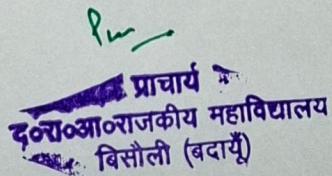 प्राचार्य
द०रा०आ०राजकीय महाविद्यालय
बिसौली (बदायूँ)